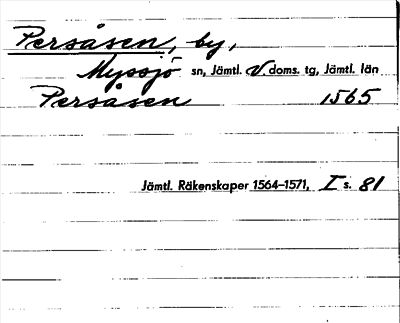 Persåsen, by,
Myssjö sn, Jämtl. V doms. tg, Jämtl. län
Persåsen 1565
Jämtl. Räkenskaper 1564–1571, I s. 81